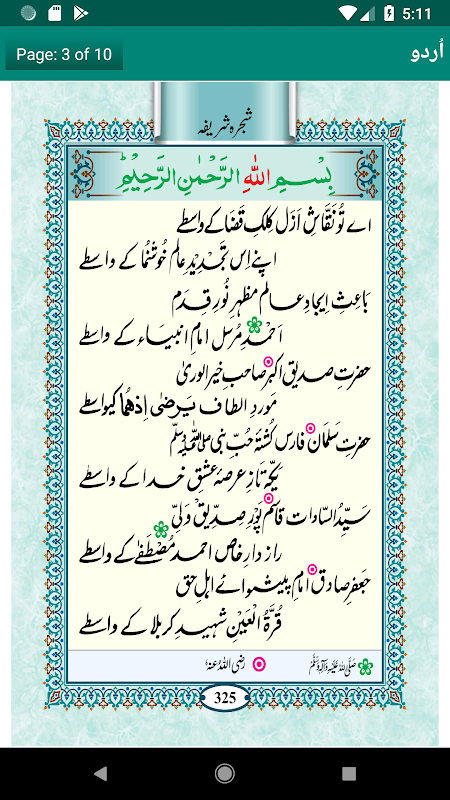 5:11
Page: 3 of 10
اُردو
شجرہ شریفہ
بِسْمِ اللّٰہِ الرَّحْمٰنِ الرَّحِیْمِ
اے تُو نَقَّاشِ اَزَل کِلکِ قَضَا کے واسطے
اپنے اِس تَجْدِیدِ عالم خُوشنُما کے واسطے
بَاعِثِ اِیجادِ عالم مظہرِ نُورِ قِدَم
احمدِ مُرسل امامِ انبیاء کے واسطے
حضرتِ صدیقِ اکبر صاحبِ خیرالوریٰ
مَوردِ الطاف یَرضٰی اِذھُما کیواسطے
حضرتِ سَلمَان فارس کُشتۂ حُبِّ نبی صلی اللہ علیہ وسلم
یکّہ تازِ عرصۂ عشقِ خدا کے واسطے
سیِّدُ السّادات قاسم پورِ صِدِّیق وَلِیّ
راز دارِ خاص احمد مُصْطَفےٰ کے واسطے
جعفرِ صادق امامِ پیشوائے اہلِ حق
قُرَّۃُ الْعَیْن شہیدِ کربلا کے واسطے
صَلَّی اللہُ عَلَیْہِ وَآلِہٖ وَسَلَّمْ رضی اللہُ عنہٗ
325